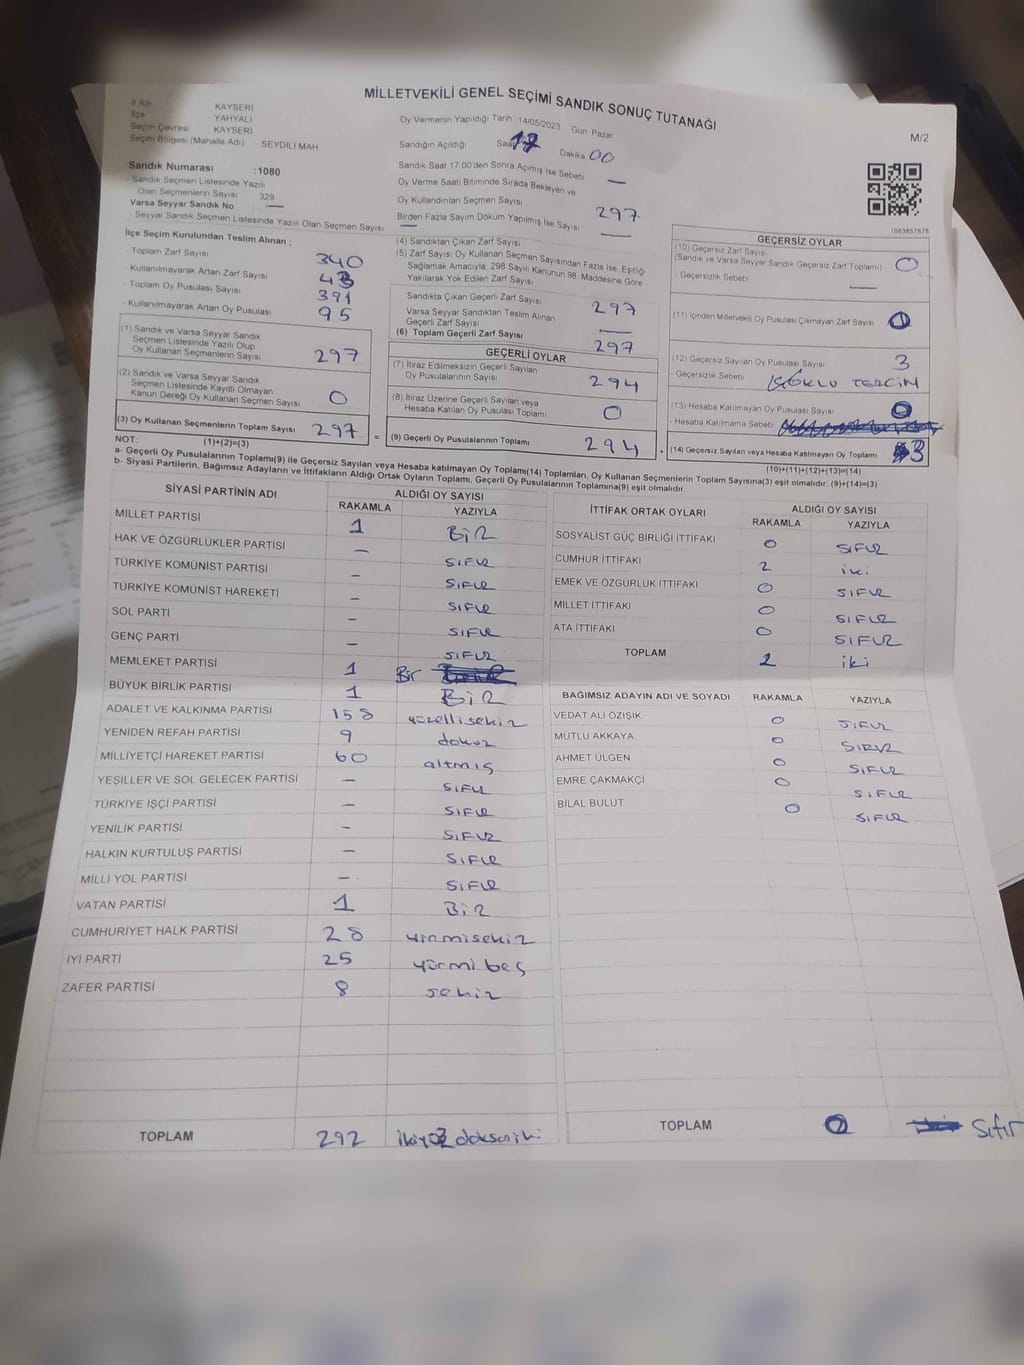 MİLLETVEKİLİ GENEL SEÇİMİ SANDIK SONUÇ TUTANAĞI
M/2
İl Adı KAYSERİ
İlçe YAHYALI
Seçim Çevresi KAYSERİ
Seçim Bölgesi (Mahalle Adı) SEYDİLİ MAH
Sandık Numarası : 1080
- Sandık Seçmen Listesinde Yazılı
Olan Seçmenlerin Sayısı 329
Varsa Seyyar Sandık No —
- Seyyar Sandık Seçmen Listesinde Yazılı Olan Seçmen Sayısı —
Oy Vermenin Yapıldığı Tarih 14/05/2023 Gün Pazar
Sandığın Açıldığı Saat 17 Dakika 00
Sandık Saat 17:00'den Sonra Açılmış İse Sebebi —
Oy Verme Saati Bitiminde Sırada Bekleyen ve
Oy Kullandırılan Seçmen Sayısı 297
Birden Fazla Sayım Döküm Yapılmış İse Sayısı —
1083857878
İlçe Seçim Kurulundan Teslim Alınan ;
- Toplam Zarf Sayısı 340
- Kullanılmayarak Artan Zarf Sayısı 43
- Toplam Oy Pusulası Sayısı 391
- Kullanılmayarak Artan Oy Pusulası 95
(1) Sandık ve Varsa Seyyar Sandık
Seçmen Listesinde Yazılı Olup
Oy Kullanan Seçmenlerin Sayısı 297
(2) Sandık ve Varsa Seyyar Sandık
Seçmen Listesinde Kayıtlı Olmayan
Kanun Gereği Oy Kullanan Seçmen Sayısı 0
(3) Oy Kullanan Seçmenlerin Toplam Sayısı 297 =
(4) Sandıktan Çıkan Zarf Sayısı
(5) Zarf Sayısı Oy Kullanan Seçmen Sayısından Fazla İse, Eşitliği
Sağlamak Amacıyla, 298 Sayılı Kanunun 98. Maddesine Göre
Yakılarak Yok Edilen Zarf Sayısı
Sandıkta Çıkan Geçerli Zarf Sayısı 297
Varsa Seyyar Sandıktan Teslim Alınan
Geçerli Zarf Sayısı —
(6) Toplam Geçerli Zarf Sayısı 297
GEÇERLİ OYLAR
(7) İtiraz Edilmeksizin Geçerli Sayılan
Oy Pusulalarının Sayısı 294
(8) İtiraz Üzerine Geçerli Sayılan veya
Hesaba Katılan Oy Pusulası Toplamı 0
(9) Geçerli Oy Pusulalarının Toplamı 294 +
GEÇERSİZ OYLAR
(10) Geçersiz Zarf Sayısı
(Sandık ve Varsa Seyyar Sandık Geçersiz Zarf Toplamı) 0
- Geçersizlik Sebebi —
(11) İçinden Milletvekili Oy Pusulası Çıkmayan Zarf Sayısı 0
(12) Geçersiz Sayılan Oy Pusulası Sayısı 3
- Geçersizlik Sebebi TERCİH
(13) Hesaba Katılmayan Oy Pusulası Sayısı 0
- Hesaba Katılmama Sebebi
(14) Geçersiz Sayılan veya Hesaba Katılmayan Oy Toplamı 3
NOT: (1)+(2)=(3) (10)+(11)+(12)+(13)=(14)
a- Geçerli Oy Pusulaları Toplamı(9) ile Geçersiz Sayılan veya Hesaba katılmayan Oy Toplamı(14) Toplamları, Oy Kullanan Seçmenlerin Toplam Sayısına(3) eşit olmalıdır. (9)+(14)=(3)
b- Siyasi Partilerin, Bağımsız Adayların ve İttifakların Aldığı Ortak Oyların Toplamı, Geçerli Oy Pusulalarının Toplamına(9) eşit olmalıdır.
SİYASİ PARTİNİN ADI ALDIĞI OY SAYISI
RAKAMLA YAZIYLA
MİLLET PARTİSİ 1 BİR
HAK VE ÖZGÜRLÜKLER PARTİSİ — SIFIR
TÜRKİYE KOMÜNİST PARTİSİ — SIFIR
TÜRKİYE KOMÜNİST HAREKETİ — SIFIR
SOL PARTİ — SIFIR
GENÇ PARTİ — SIFIR
MEMLEKET PARTİSİ 1 Bir
BÜYÜK BİRLİK PARTİSİ 1 BİR
ADALET VE KALKINMA PARTİSİ 158 yüzellisekiz
YENİDEN REFAH PARTİSİ 9 dokuz
MİLLİYETÇİ HAREKET PARTİSİ 60 altmış
YEŞİLLER VE SOL GELECEK PARTİSİ — SIFIR
TÜRKİYE İŞÇİ PARTİSİ — SIFIR
YENİLİK PARTİSİ — SIFIR
HALKIN KURTULUŞ PARTİSİ — SIFIR
MİLLİ YOL PARTİSİ — SIFIR
VATAN PARTİSİ 1 BİR
CUMHURİYET HALK PARTİSİ 28 yirmisekiz
İYİ PARTİ 25 yirmi beş
ZAFER PARTİSİ 8 sekiz
TOPLAM 292 ikiyüz doksaniki
İTTİFAK ORTAK OYLARI ALDIĞI OY SAYISI
RAKAMLA YAZIYLA
SOSYALİST GÜÇ BİRLİĞİ İTTİFAKI 0 SIFIR
CUMHUR İTTİFAKI 2 iki
EMEK VE ÖZGÜRLÜK İTTİFAKI 0 SIFIR
MİLLET İTTİFAKI 0 SIFIR
ATA İTTİFAKI 0 SIFIR
TOPLAM 2 iki
BAĞIMSIZ ADAYIN ADI VE SOYADI RAKAMLA YAZIYLA
VEDAT ALİ ÖZIŞIK 0 SIFIR
MUTLU AKKAYA 0 SIFIR
AHMET ÜLGEN 0 SIFIR
EMRE ÇAKMAKÇİ 0 SIFIR
BİLAL BULUT 0 SIFIR
TOPLAM 0 Sıfır